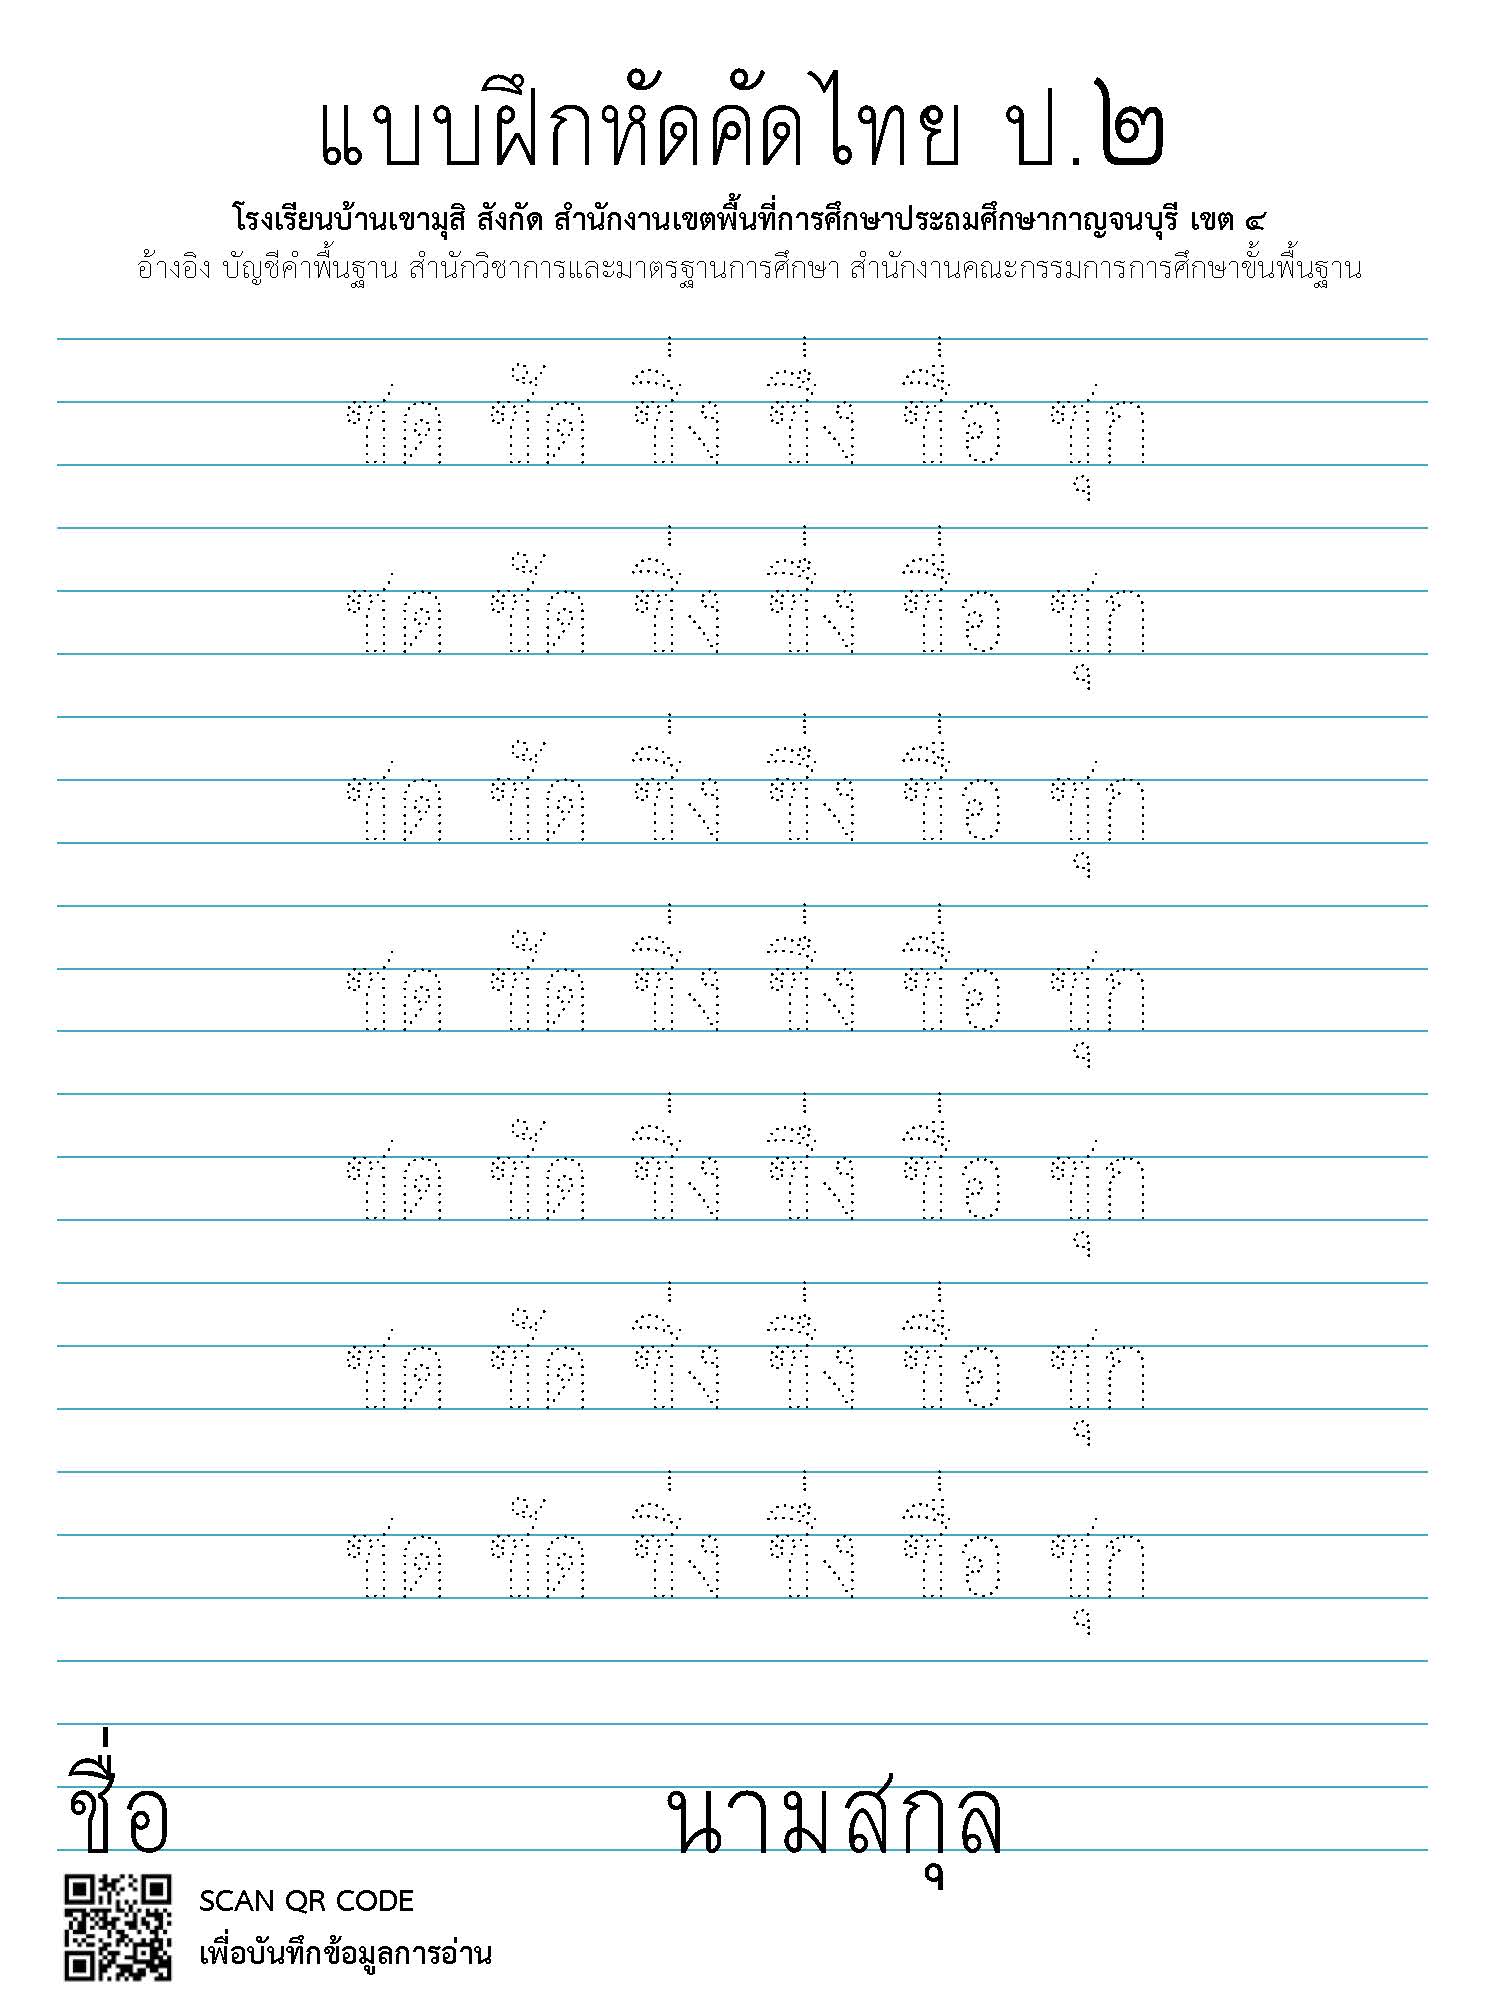 แบบฝึกหัดคัดไทย ป.๒
โรงเรียนบ้านเขามุสิ สังกัด สำนักงานเขตพื้นที่การศึกษาประถมศึกษากาญจนบุรี เขต ๔
อ้างอิง บัญชีคำพื้นฐาน สำนักวิชาการและมาตรฐานการศึกษา สำนักงานคณะกรรมการการศึกษาขั้นพื้นฐาน
ซด ซัด ซิ่ง ซึ่ง ซื่อ ซุก
ซด ซัด ซิ่ง ซึ่ง ซื่อ ซุก
ซด ซัด ซิ่ง ซึ่ง ซื่อ ซุก
ซด ซัด ซิ่ง ซึ่ง ซื่อ ซุก
ซด ซัด ซิ่ง ซึ่ง ซื่อ ซุก
ซด ซัด ซิ่ง ซึ่ง ซื่อ ซุก
ซด ซัด ซิ่ง ซึ่ง ซื่อ ซุก
ชื่อ นามสกุล
SCAN QR CODE
เพื่อบันทึกข้อมูลการอ่าน